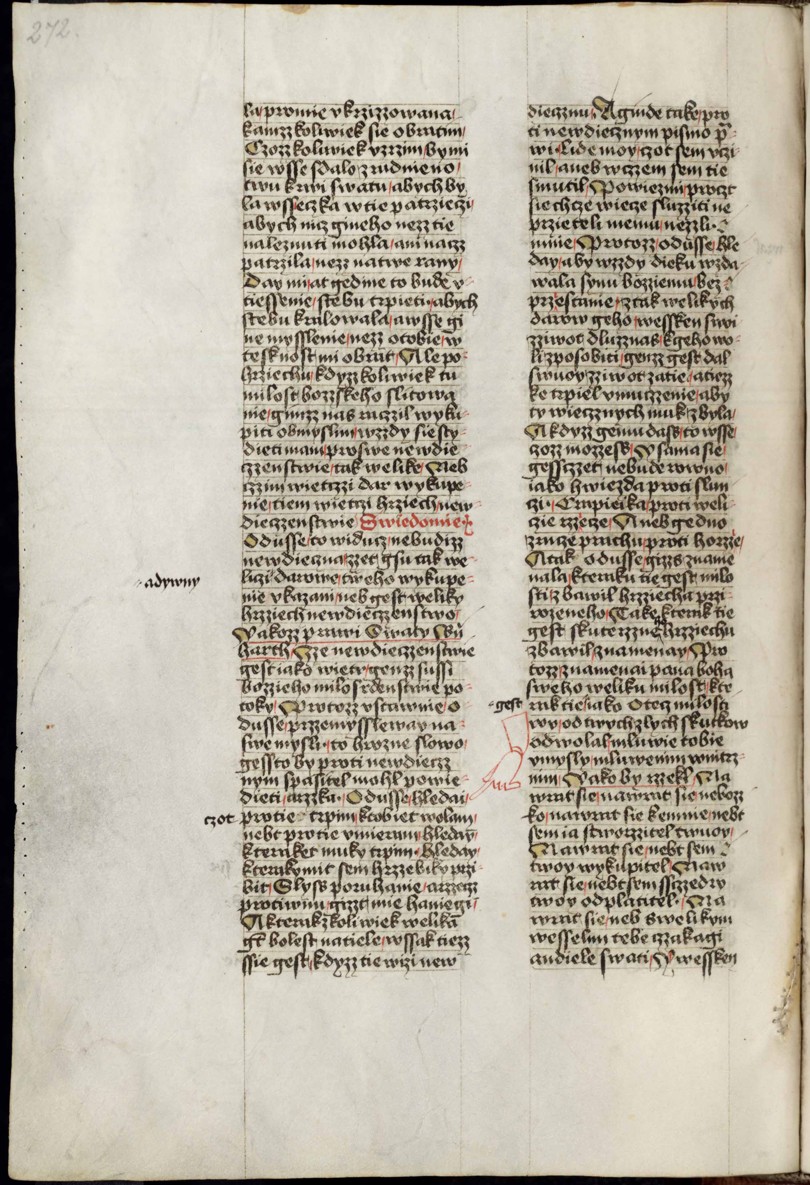 272.
la pro mie vkrzizzowana
kamzz koliwiek sie obratim
Czozz koliwiek vzrzim by mi
sie wsse sdalo zrudnieno
twu krwi swatu abych by
la wsseczka w tie patrzieczi
abych nicz gineho nezz tie
naleznuti mohla ani nacz
patrzila nezz na twe rany
Day mi at gedine to bude v
tiessenie s tebu trpieti abych
s tebu kralowala a wsse gi
ne mysslenie nezz o tobie w
tesknost mi obrat Ale po
hrziechu kdyzz koliwiek tu
milost bozzskeho slitowa
nie gimzz nas raczil wyku
piti obmyslim wzzdy sie sty
dieti mam pro swe newdie
czzenstwie tak welike Neb
czzim wietczzi dar wykupe
nie tiem wietczi hrziech new
dieczzenstwie Swiedomie
O dusse to widucz nebudizz
newdieczna zzet gsu tak we
liczi darowe tweho wykupe
nie vkazani neb gest weliky
hrziech newdieczzenstwo
Yakozz prawi Swaty Ber
narth Zze newdieczzenstwie
gest iako wietr genzz sussi
bozzieho milosrdenstwie po
toky Protozz vstawnie o
dusse przemyssleway na
swe mysli to hrozne slowo
gessto by proti newdiecz
nym spasitel mohl powie
dieti arzka O dusse hledai
czot pro tie trpim k tobiet wolam
nebt pro tie vmieram hleday
kteraket muky trpim Hleday
kterakymit sem hrzzebiky przi
bit Slyss poruhanie a rzecz
protiwnu gizzt mie haniegi
A kterakzkoliwiek welika
gest bolest na tiele wssak tiezz
ssie gest kdyzz tie wizi new
adywny
diecznu A ginde take pro
ti newdiecznym pismo pra
wi Lide moy czot sem vczi
nil a neb w czzem sem tie
smutil Powiezmi procz
sie chcze wiecze sluzziti ne
przieteli memu nezzli
mnie Protozz o dusse hle
day aby wzzdy dieku wzda
wala synu bozziemu bez
przestanie z tak welikych
darow geho wessken swi
zziwot dluzznas k gehowo
li zposobiti genzz gest dal
swuoy zziwot za tie a tiezz
ke trpiel vmuczzenie aby
ty wiecznych muk zbyla
A kdyzz gemu dass to wsse
czozz mozzess Y sama sie
gessczzet nebude rowno
iako hwiezda proti slun
czi Crupieika proti weli
czie rzzecze A neb gedno
zrnce prachu proti horzie
A tak o dusse gizzs zname
nala kteraku tie gest milo
sti zbawil hrzziecha przi
rozeneho Take kterak tie
gest skutezzneho hrzziechu
zbawil znamenay Pro
tozz znamenai pana boha
sweho weliku milost kte
gest
rak tie iako otecz milosti
wy od twych zlych skutkow
odwolal mluwie tobie
v mysly mluwenim wnitrz
nim Yako by rzzekl Na
wrat sie nawrat sie neboz
ko nawrat sie ke mnie nebt
sem ia stworzzitel twuoy
Nawrat sie nebt sem
twoy wykupitel Naw
rat sie nebt sem sczedry
twoy odplatitel Na
wrat sie neb s welikym
wesselim tebe czzakagi
andiele swati Y wessken